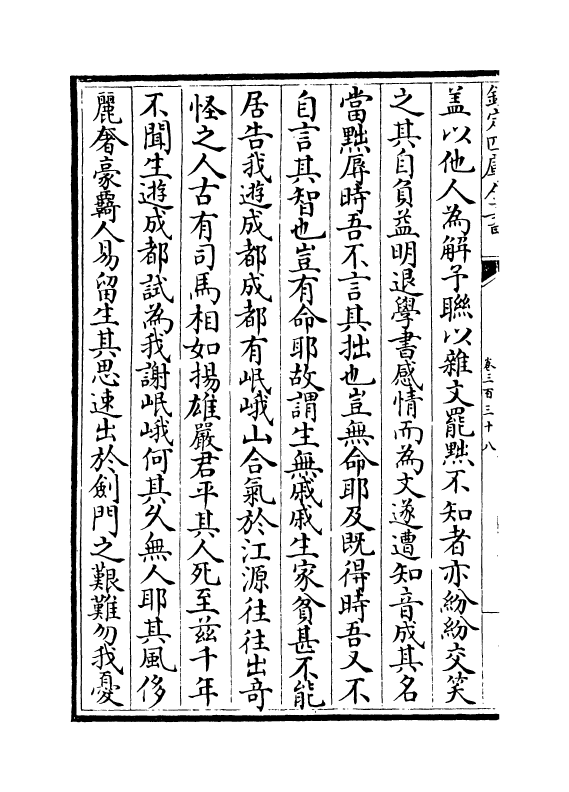 欽定四庫全書
卷三百三十八
盖以他人為解予聮以雜文罷黜不知者亦紛紛交笑
之其自負益明退學書感情而為文遂遭知音成其名
當黜辱時吾不言其拙也豈無命耶及既得時吾又不
自言其智也豈有命耶故謂生無戚戚生家貧甚不能
居告我遊成都成都有岷峨山合氣於江源往往出奇
怪之人古有司馬相如揚雄嚴君平其人死至兹千年
不聞生遊成都試為我謝岷峨何其乆無人耶其風侈
麗奢豪羇人易留生其思速出於劒門之艱難勿我憂